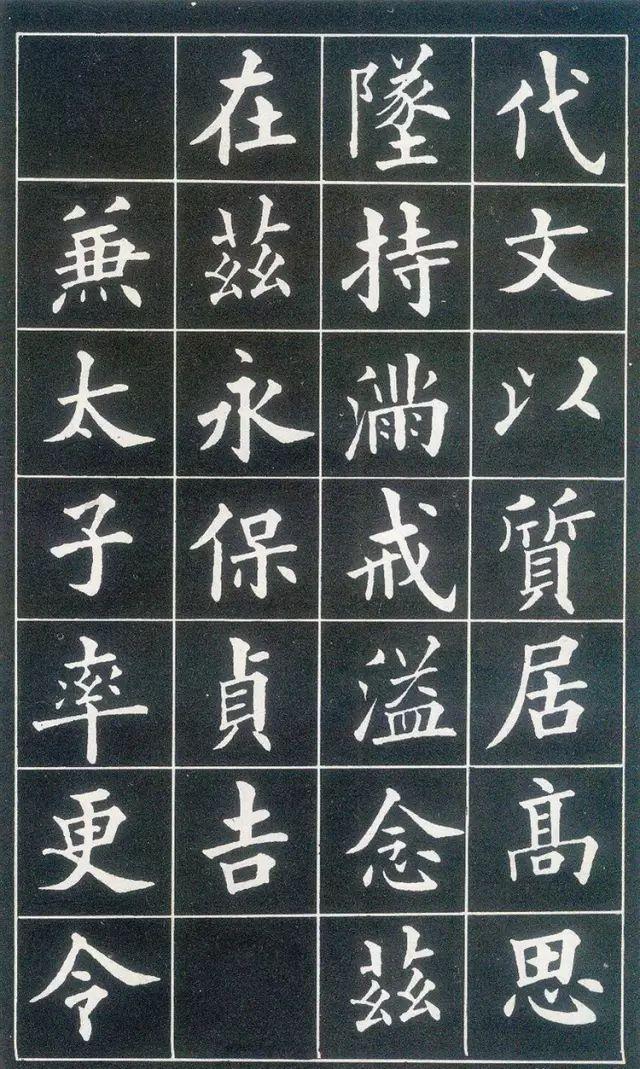 代文以質居高思
墜持滿戒溢念茲
在茲永保貞吉
兼太子率更令